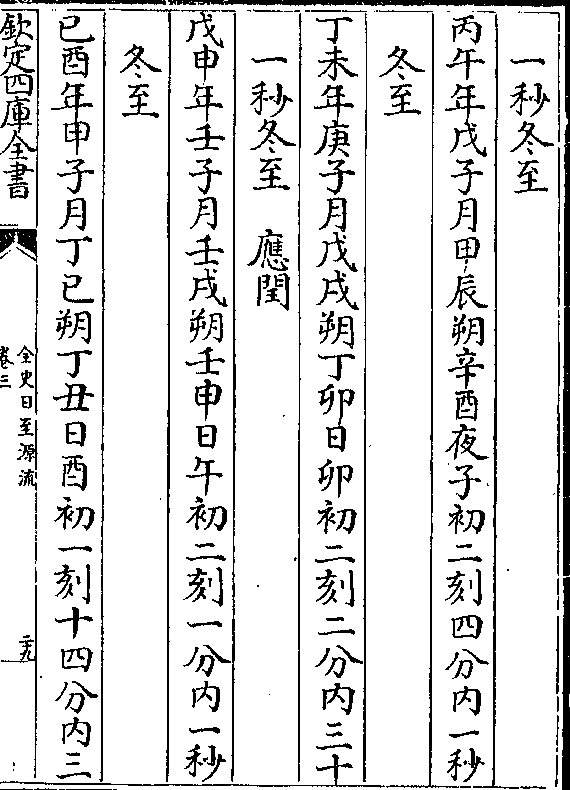 一秒冬至
丙午年戊子月甲辰朔辛酉夜子初二刻四分内一秒
冬至
丁未年庚子月戊戌朔丁卯日卯初二刻二分内三十
一秒冬至　應閏
戊申年壬子月壬戌朔壬申日午初二刻一分内一秒
冬至
已酉年甲子月丁已朔丁丑日酉初一刻十四分内三
欽定四庫全書
全史日至源流
卷三
二十九